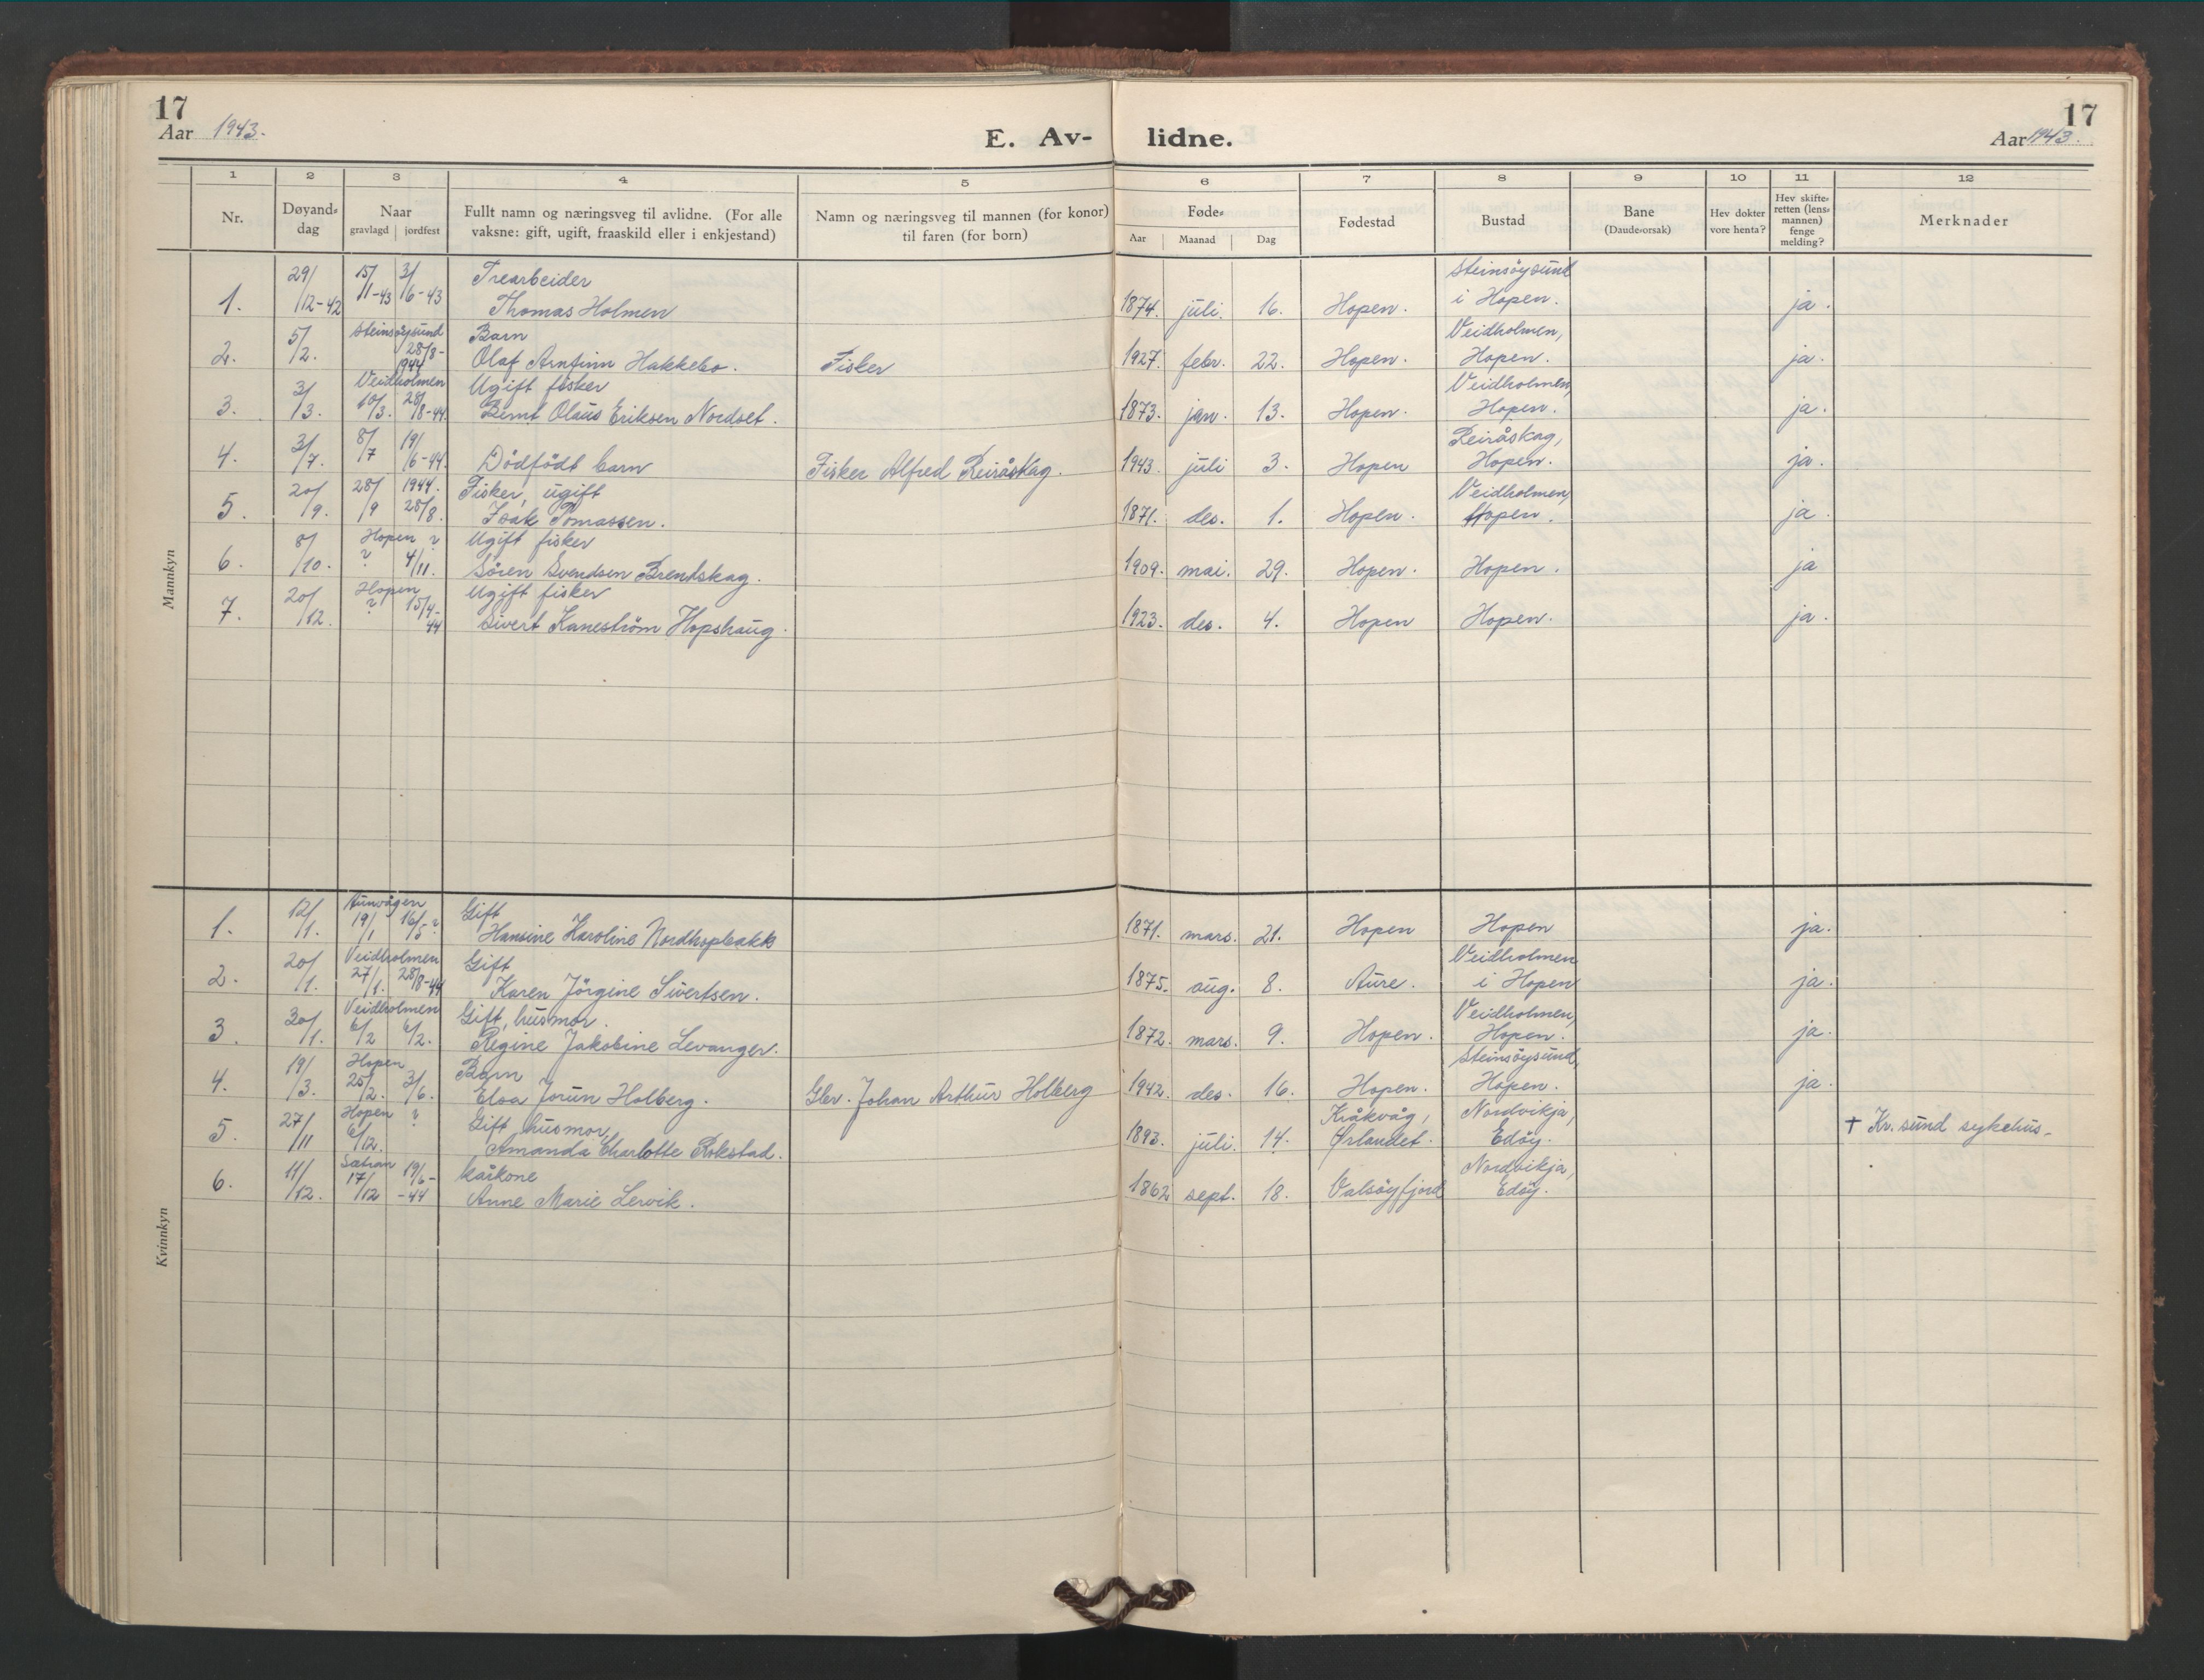 17
Aar 1943.
E. Av-
lidne.
17
Aar 1943.
1 2 3 4 5 6 7 8 9 10 11 12
Nr.
Døyand-
dag
Naar
gravlagd | jordfest
Fullt namn og næringsveg til avlidne. (For alle
vaksne: gift, ugift, fraaskild eller i enkjestand)
Namn og næringsveg til mannen (for konor)
til faren (for born)
Føde-
Aar | Maanad | Dag
Fødestad
Bustad
Bane
(Daude-orsak)
Hev dokter
vore henta?
Hev skifte-
retten (lens-
mannen)
fenge
melding?
Merknader
Mannkyn
29/ 15/ 3/ Trearbeider Steinsöysund
1. /12-42 /1-43 /6-43 Thomas Holmen 1874. juli. 16. Hopen. i Hopen. ja.
Steinsöysund Barn Veidholmen,
2. 5/2. 28/8-1944 Olaf Arnfinn Hakkebo. Fisker 1927. febr. 22. Hopen. Hopen. ja.
Veidholmen Ugift fisker Veidholmen,
3. 3/3. 10/3. 28/8-44 Bernt Olaus Eriksen Nordset. 1873. jan. 13. Hopen. Hopen. ja.
Reiråskag,
4. 3/7. 8/7 19/6-44. Dödfödt barn Fisker Alfred Reiråskag. 1943. juli 3. Hopen Hopen. ja.
1944. Fisker, ugift Veidholmen,
5. 20/9. 28/9 28/8. Isak Tomassen. 1871. des. 1. Hopen. Hopen. ja
Hopen ? Ugift fisker
6. 8/10. ? 4/11. Sören Svendsen Brendskag. 1909. mai. 29. Hopen. Hopen. ja
Hopen Ugift fisker
7. 20/12. ? 15/4-44 Sivert Kaneström Hopshaug. 1923. des. 4. Hopen Hopen. ja.
Kvinnkyn
Aunvågen Gift
1. 12/1. 19/1 16/5? Hansine Karoline Nordhopbakk 1871. mars. 21. Hopen Hopen ja.
Veidholmen Gift Veidholmen
2. 20/1. 27/1. 28/8-44 Karen Jörgine Sivertsen. 1875. aug. 8. Aure. i Hopen ja.
Veidholmen Gift, husmor. Veidholmen,
3. 30/1. 6/2 6/2. Regine Jakobine Levanger. 1872. mars. 9. Hopen. Hopen. ja.
Hopen Barn Steinsöysund,
4. 19/3. 25/2. 3/6. Eloa Jorun Holberg. Gbr. Johan Arthur Holberg 1942. des. 16. Hopen. Hopen. ja.
Hopen ? Gift husmor, Kråkvåg, Nordvikja,
5. 27/11 6/12. Amanda Charlotte Rokstad. 1893. juli. 14. Ørlandet. Edöy. † Kr.sund sykehus-
Kårkone Nordvikja,
6. 11/12. 17/12 19/6-44 Anne Marie Lervik. 1862 sept. 18. Valsöyfjord Edöy.